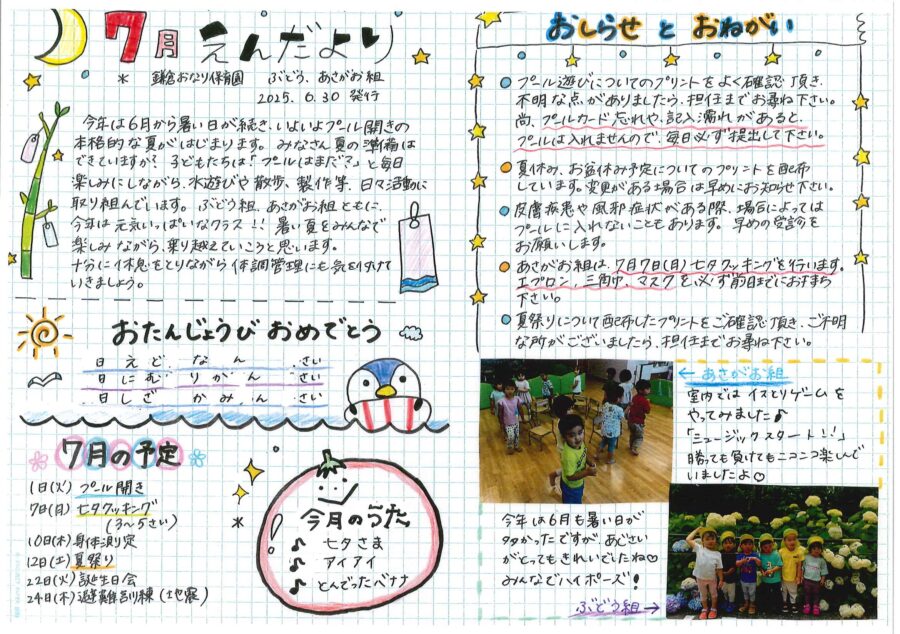 7月 えんだより
* 鎌倉おなり保育園 ぶどう、あさがお組
2025. 6.30 発行
今年は6月から暑い日が続き、いよいよプール開きの
本格的な夏がはじまります。みなさん夏の準備は
できていますか? 子どもたちは「プールはまだ?」と毎日
楽しみにしながら、水遊びや散歩、製作等、日々活動に
取り組んでいます。ぶどう組、あさがお組ともに、
今年は元気いっぱいなクラス!! 暑い夏をみんなで
楽しみながら、乗り越えていこうと思います。
十分に休息をとりながら体調管理にも気を付けて
いきましょう。
おたんじょうび おめでとう
日 えど なん さい
日 にむ りか ん さい
日 しざ かみ ん さい
7月の予定
1日(火) プール開き
7日(月) 七夕クッキング
(3~5さい)
10日(木) 身体測定
12日(土) 夏祭り
22日(火) 誕生日会
24日(木) 避難訓練(地震)
*
今月のうた
♪ 七夕さま
♪ アイアイ
♪ とんでったバナナ
おしらせ と おねがい
プール遊びについてのプリントをよく確認頂き、
不明な点がありましたら、担任までお尋ね下さい。
尚、プールカード忘れや、記入漏れがあると、
プールは入れませんので、毎日必ず提出して下さい。
夏休み、お盆休み予定についてのプリントを配布
しています。変更がある場合は早めにお知らせ下さい。
皮膚疾患や風邪症状がある際、場合によっては
プールに入れないこともあります。早めの受診を
お願いします。
あさがお組は、7月7日(月)七夕クッキングを行います。
エプロン、三角巾、マスクを必ず前日までにお持ち
下さい。
夏祭りについて配布したプリントをご確認頂き、ご不明
な所がございましたら、担任までお尋ね下さい。
← あさがお組
室内では イスとりゲームを
やってみました♪
「ミュージックスタート!!」
勝っても負けてもニコニコ楽しんで
いましたよ♡
今年は6月も暑い日が
多かったですが、あじさい
がとってもきれいでしたね♡
みんなでハイポーズ!
ぶどう組→